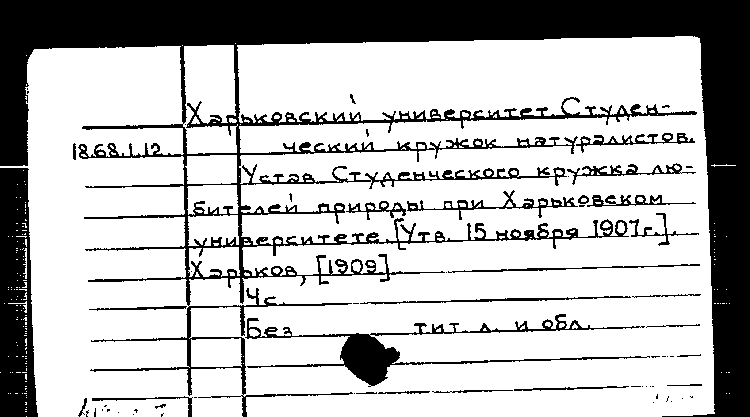 Харьковский университет. Студен-
18.68.1.12. ческий кружок натуралистов.
Устав Студенческого кружка лю-
бителей природы при Харьковском
университете. [Утв. 15 ноября 1907г.].
Харьков, [1909]
4с.
Без тит. л. и обл.